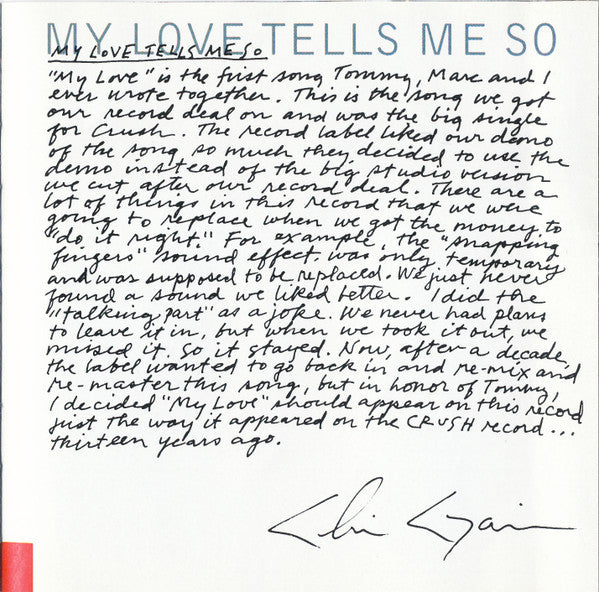 MY LOVE TELLS ME SO
MY LOVE TELLS ME SO
"My Love" is the first song Tommy, Marc and I
ever wrote together. This is the song we got
our record deal on and was the big single
for Crush. The record label liked our demo
of the song so much they decided to use the
demo instead of the big studio version
we cut after our record deal. There are a
lot of things in this record that we were
going to replace when we got the money to
"do it right." For example, the "snapping
fingers" sound effect was only temporary
and was supposed to be replaced. We just never
found a sound we liked better. I did the
"talking part" as a joke. We never had plans
to leave it in, but when we took it out, we
missed it. So it stayed. Now, after a decade,
the label wanted to go back in and re-mix and
re-master this song, but in honor of Tommy,
I decided "My Love" should appear on this record
just the way it appeared on the CRUSH record...
thirteen years ago.